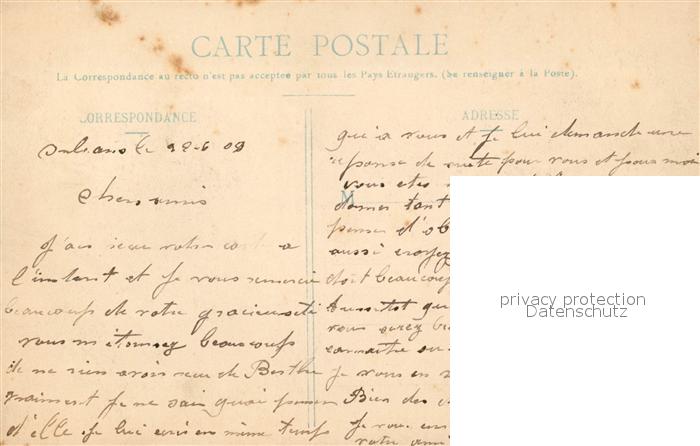 CARTE POSTALE
La Correspondance au recto n'est pas acceptée par tous les Pays Etrangers. (Se renseigner à la Poste).
CORRESPONDANCE
Orleans le 22-6 09
Chers amis
J'ai recu votre carte a
l'instant et je vous remercie
beaucoup de votre gracieuseté
vous m'étonnez beaucoup
de ne rien avoir recu de Berthe
vraiment je ne sais quoi penser
d'elle je lui écris en même temps
ADRESSE
qu'a vous et je lui demande une
reponse de suite pour vous et pour moi
vous etes
M
donner tant
aussi croyez
doit beaucoup
aussitot que
vous serez
connaitre
je vous en
Bien des
je vous en
votre
privacy protection
Datenschutz